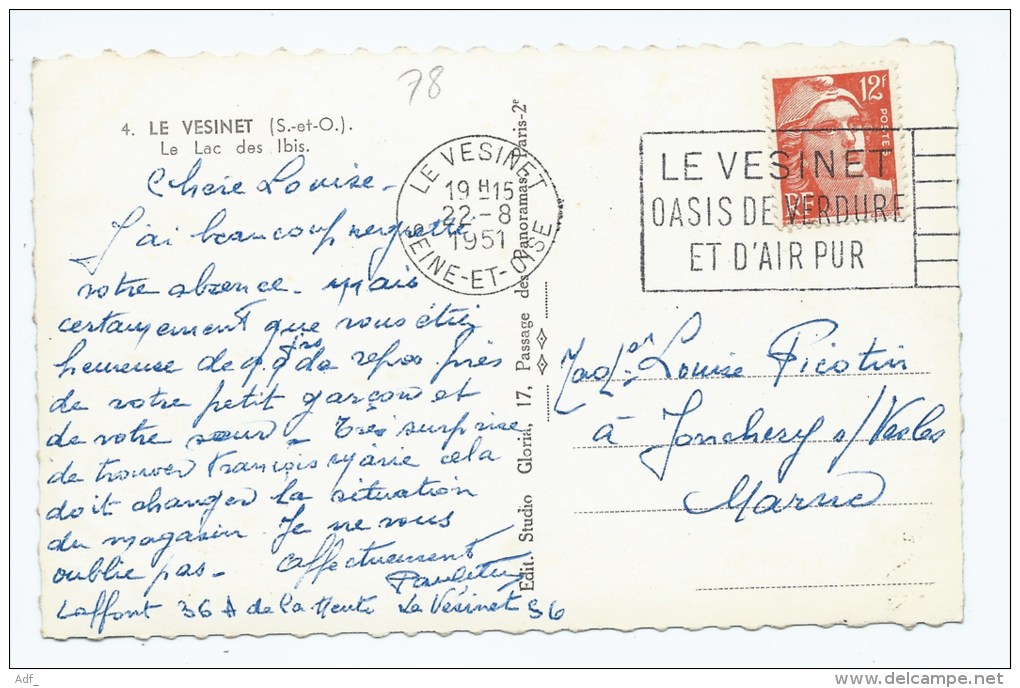 78
4. LE VESINET (S.-et-O.).
Le Lac des Ibis.
Chère Louise -
J'ai beaucoup regretté
votre absence - mais
certainement que vous étiez
heureuse de qq jrs de repos près
de votre petit garçon et
de votre sœur - très surprise
de trouver François Marie cela
doit changer la situation
du magasin. Je ne vous
oublie pas - affectueusement
Laffont 36 A de la Le Vésinet 36
Edit. Studio Gloria, 17, Passage des Panoramas, Paris-2e
LE VESINET
19 H 15
22 - 8
1951
SEINE-ET-OISE
12F
POSTES
RF
LE VESINET
OASIS DE VERDURE
ET D'AIR PUR
Louise Picotin
à Jonchery s/Vesles
Marne
Adf_
delcampe.net